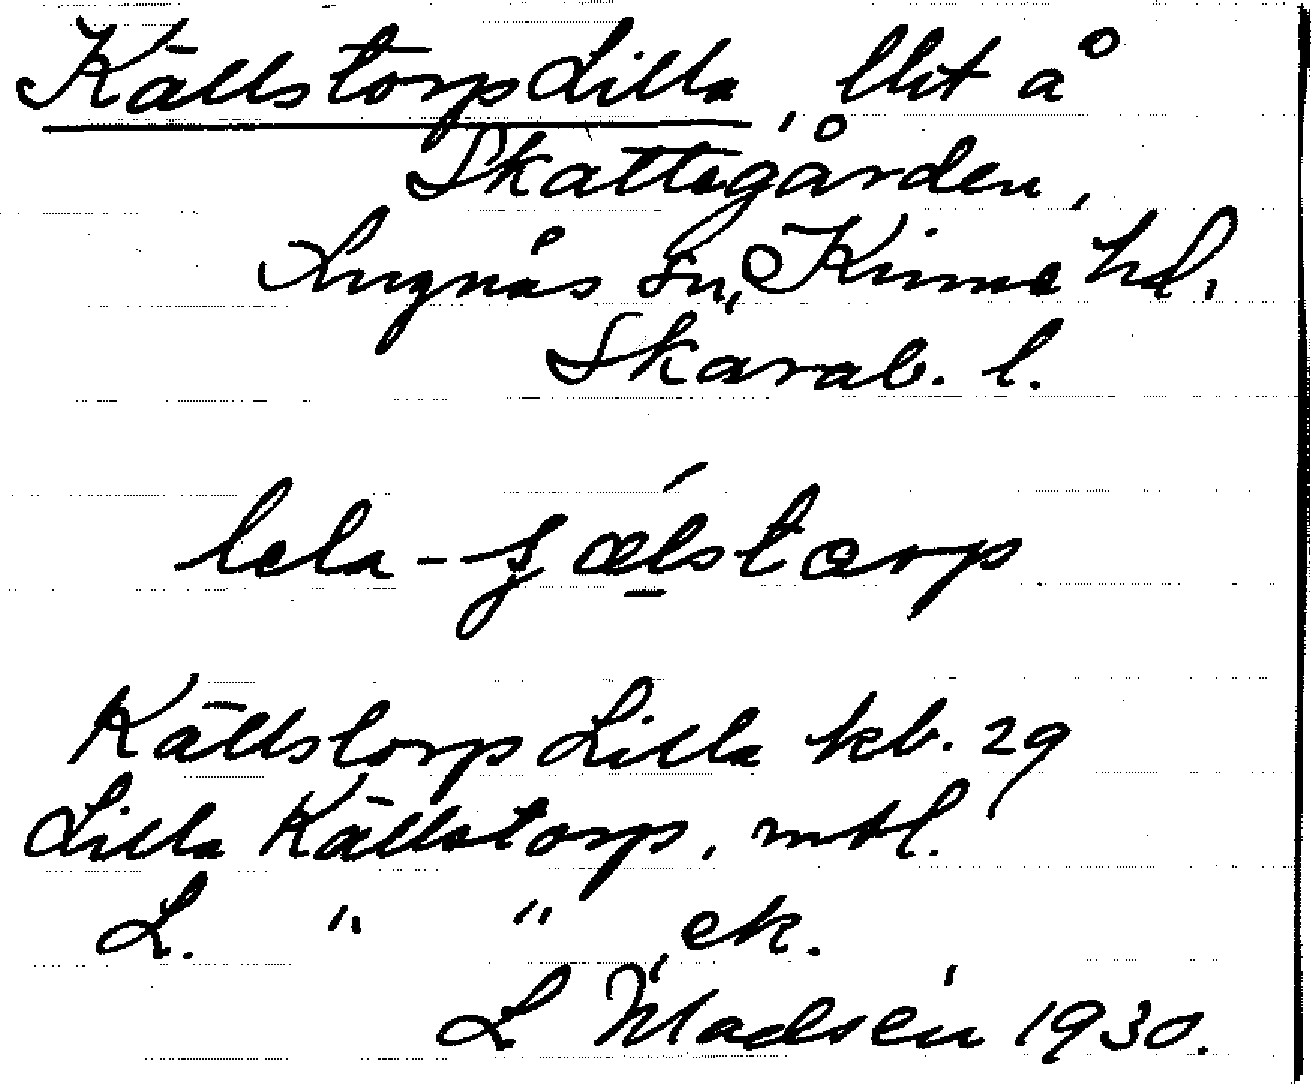 Källstorp Lilla, lht å
Skattegården,
Lugnås sn, Kinne hd,
Skarab. l.
Källstorp Lilla kb. 29
Lilla Källstorp, mtl.
L. " " , ek.
L Madsén 1930.